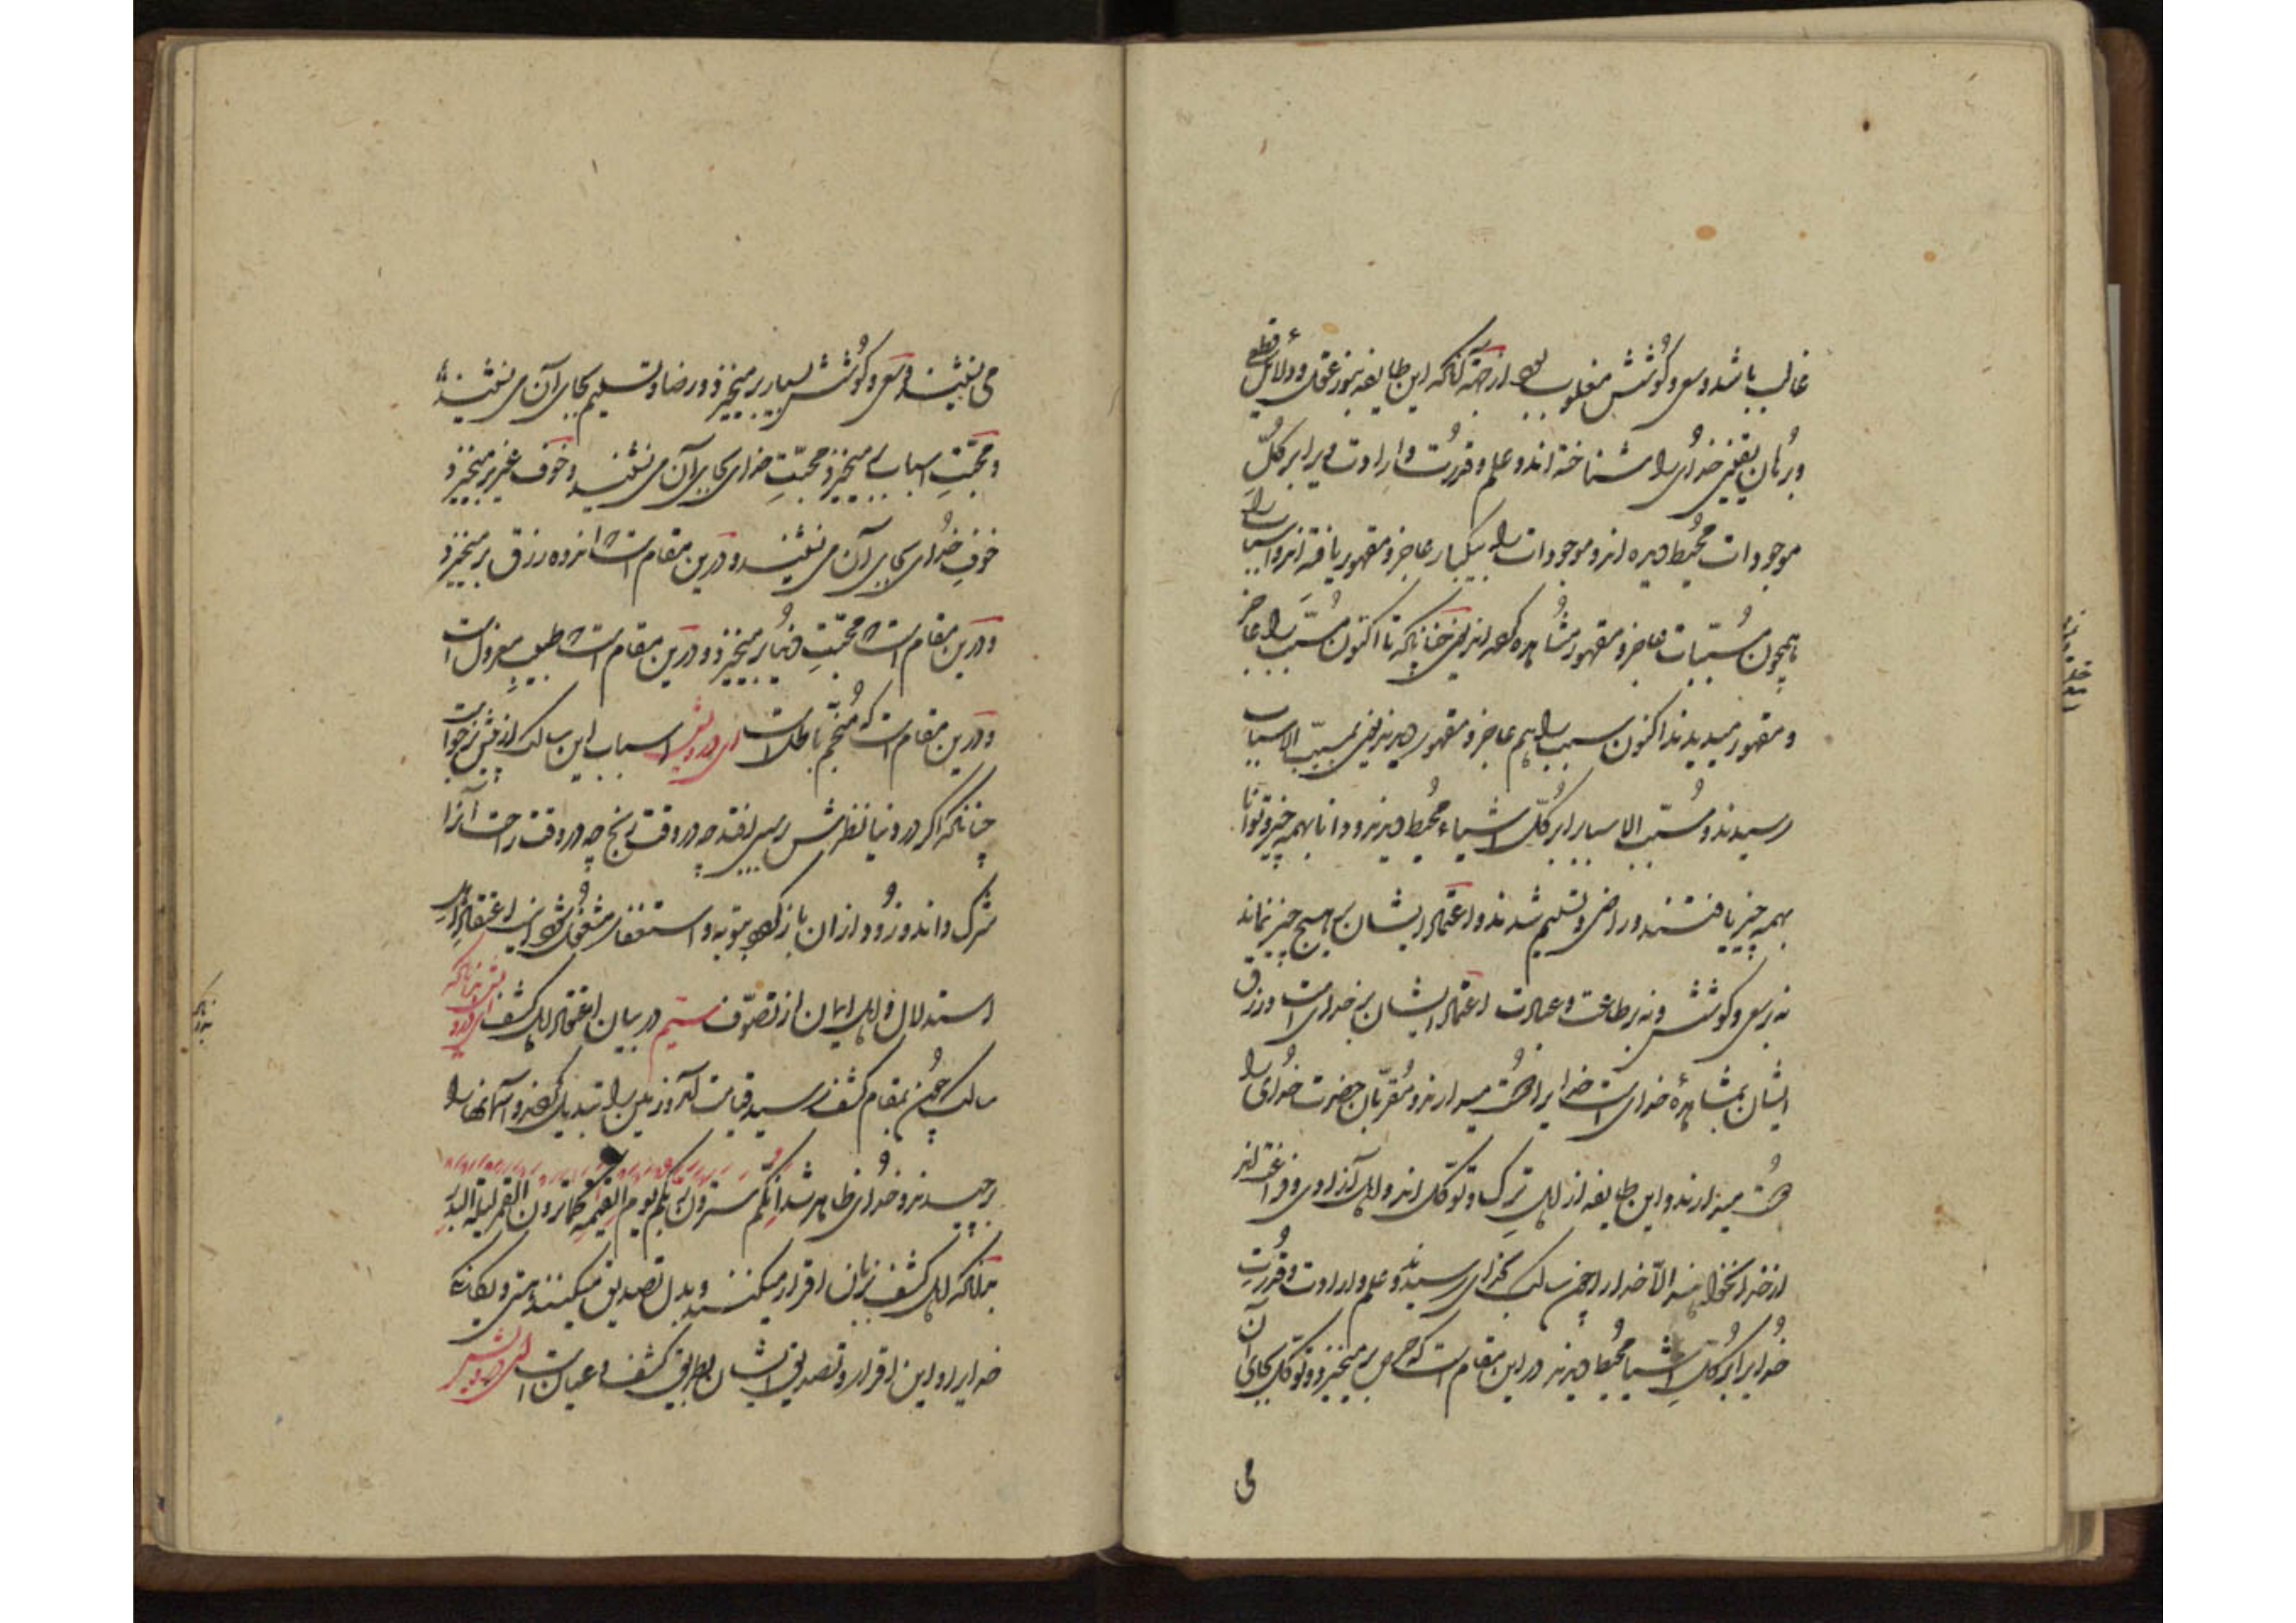 غالب باشد و سعی و کوشش مغلوب بود از جهة آنکه این طایفه بنور عقل و دلائل قطعی
و برهان یقینی خدای را شناخته‌اند و علم و قدرت و ارادت ویرا بر کلّ
موجودات محیط دیده‌اند و موجودات را بیکبار عاجز و مقهور یافته‌اند و اسباب را
همچون مسبّبات عاجز و مقهور مشاهده کرده‌اند یعنی چنانکه تا اکنون مسبّب را عاجز
و مقهور میدیدند اکنون سبب را هم عاجز و مقهور دیدند یعنی بمسبّب الاسباب
رسیدند و مسبّب الاسباب را بر کلّ اشیاء محیط دیدند و دانا بهمه چیز و توانا
بهمه چیز یافتند و راضی و تسلیم شدند و اعتماد ایشان بر هیچ چیز نماند
نه بر سعی و کوشش و نه بر طاعت و عبادت اعتماد ایشان بر خدای است و رزق
ایشان بمشاهدهٔ خدای است خدایرا دوست میدارند و مقرّبان حضرت خدای را
دوست میدارند و این طایفه از اهل ترک و توکّل‌اند و اهل آزادی و فراغت‌اند
از خدا نخواهند الّا خدا را چون سالک بخدای رسید و علم و ارادت و قدرت
خدایرا بر کلّ اشیا محیط دید در این مقام است که حرص برمیخیزد و توکّل بجای آن
می
می نشیند و سعی و کوشش بسیار برمیخیزد و رضا و تسلیم بجای آن می نشیند
و محبّت اسباب برمیخیزد محبّت خدای بجای آن می نشیند و خوف غیر برمیخیزد
خوف خدای بجای آن می نشیند و درین مقام است که اندوه رزق برمیخیزد
و درین مقام است که محبّت دنیا برمیخیزد و درین مقام است که طبیب معزول است
و درین مقام است که منجّم باطل است ای درویش اسباب این سالک از پیش برخواست
چنانکه اگر در دنیا نظرش بر سببی افتد چه در وقت رنج چه در وقت راحت آنرا
شرک داند و زود از آن باز گردد و بتوبه و استغفار مشغول شود اینست اعتقاد اهل
استدلال و اهل ایمان از تصوّف قسم سیم در بیان اعتقاد اهل کشف ای درویش بدانکه
سالک چون بمقام کشف رسید قیامت آمد و زمین را تبدیل کردند و آسمانها را
برچیدند و خدای ظاهر شد انّکم سترون ربّکم یوم القیمه کما ترون القمر لیلة البدر
بدانکه اهل کشف بزبان اقرار میکنند و بدل تصدیق میکنند هستی و یگانگی
خدایرا و این اقرار و تصدیق ایشان بطریق کشف و عیان است ای درویش